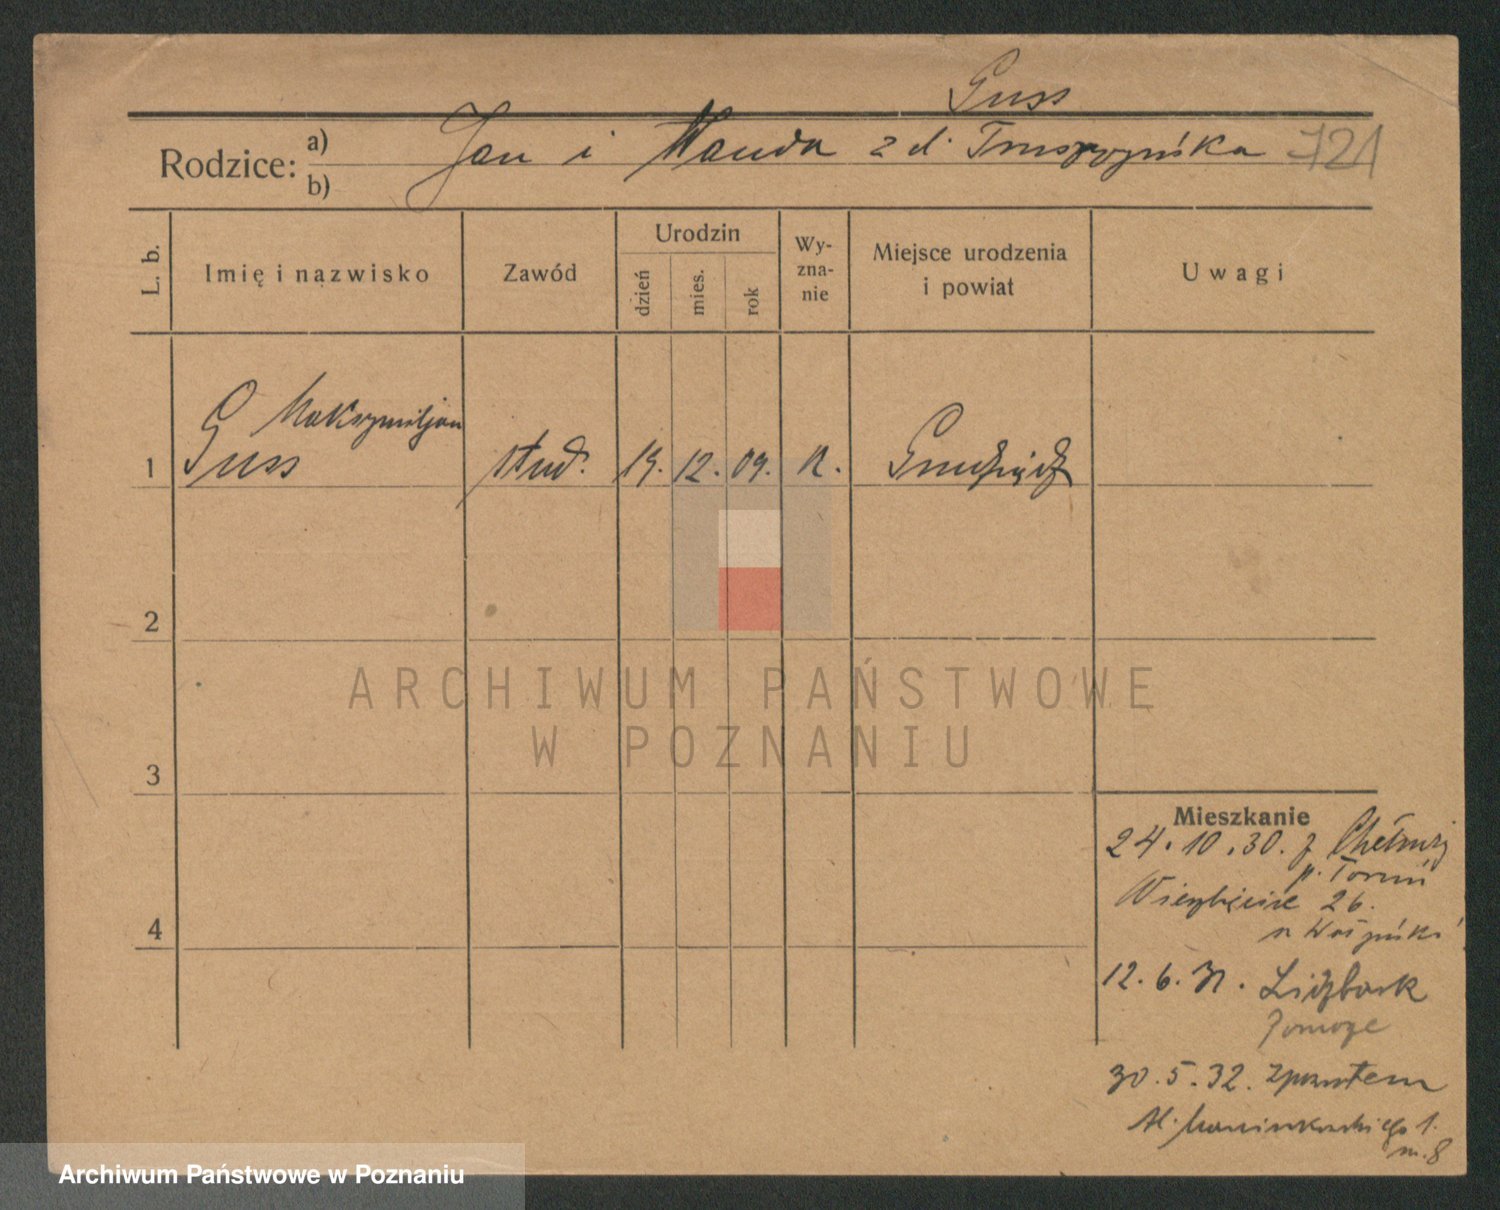 Guss
Rodzice: a) Jan i Wanda z d. Truszczyńska 721
b)
L. b. Imię i nazwisko Zawód Urodzin dzień mies. rok Wy-zna-nie Miejsce urodzenia i powiat Uwagi
Maksymiljan
1 Guss stud. 19. 12. 09. R. Grudziądz
2
ARCHIWUM PAŃSTWOWE
W POZNANIU
3
Mieszkanie
24.10.30. z
p. Toruń
Wierzbięcice 26.
4
12.6.31. Lidzbark
Pomorze
30.5.32. zpowrotem
Al. Marcinkowskiego 1.
m. 8
Archiwum Państwowe w Poznaniu